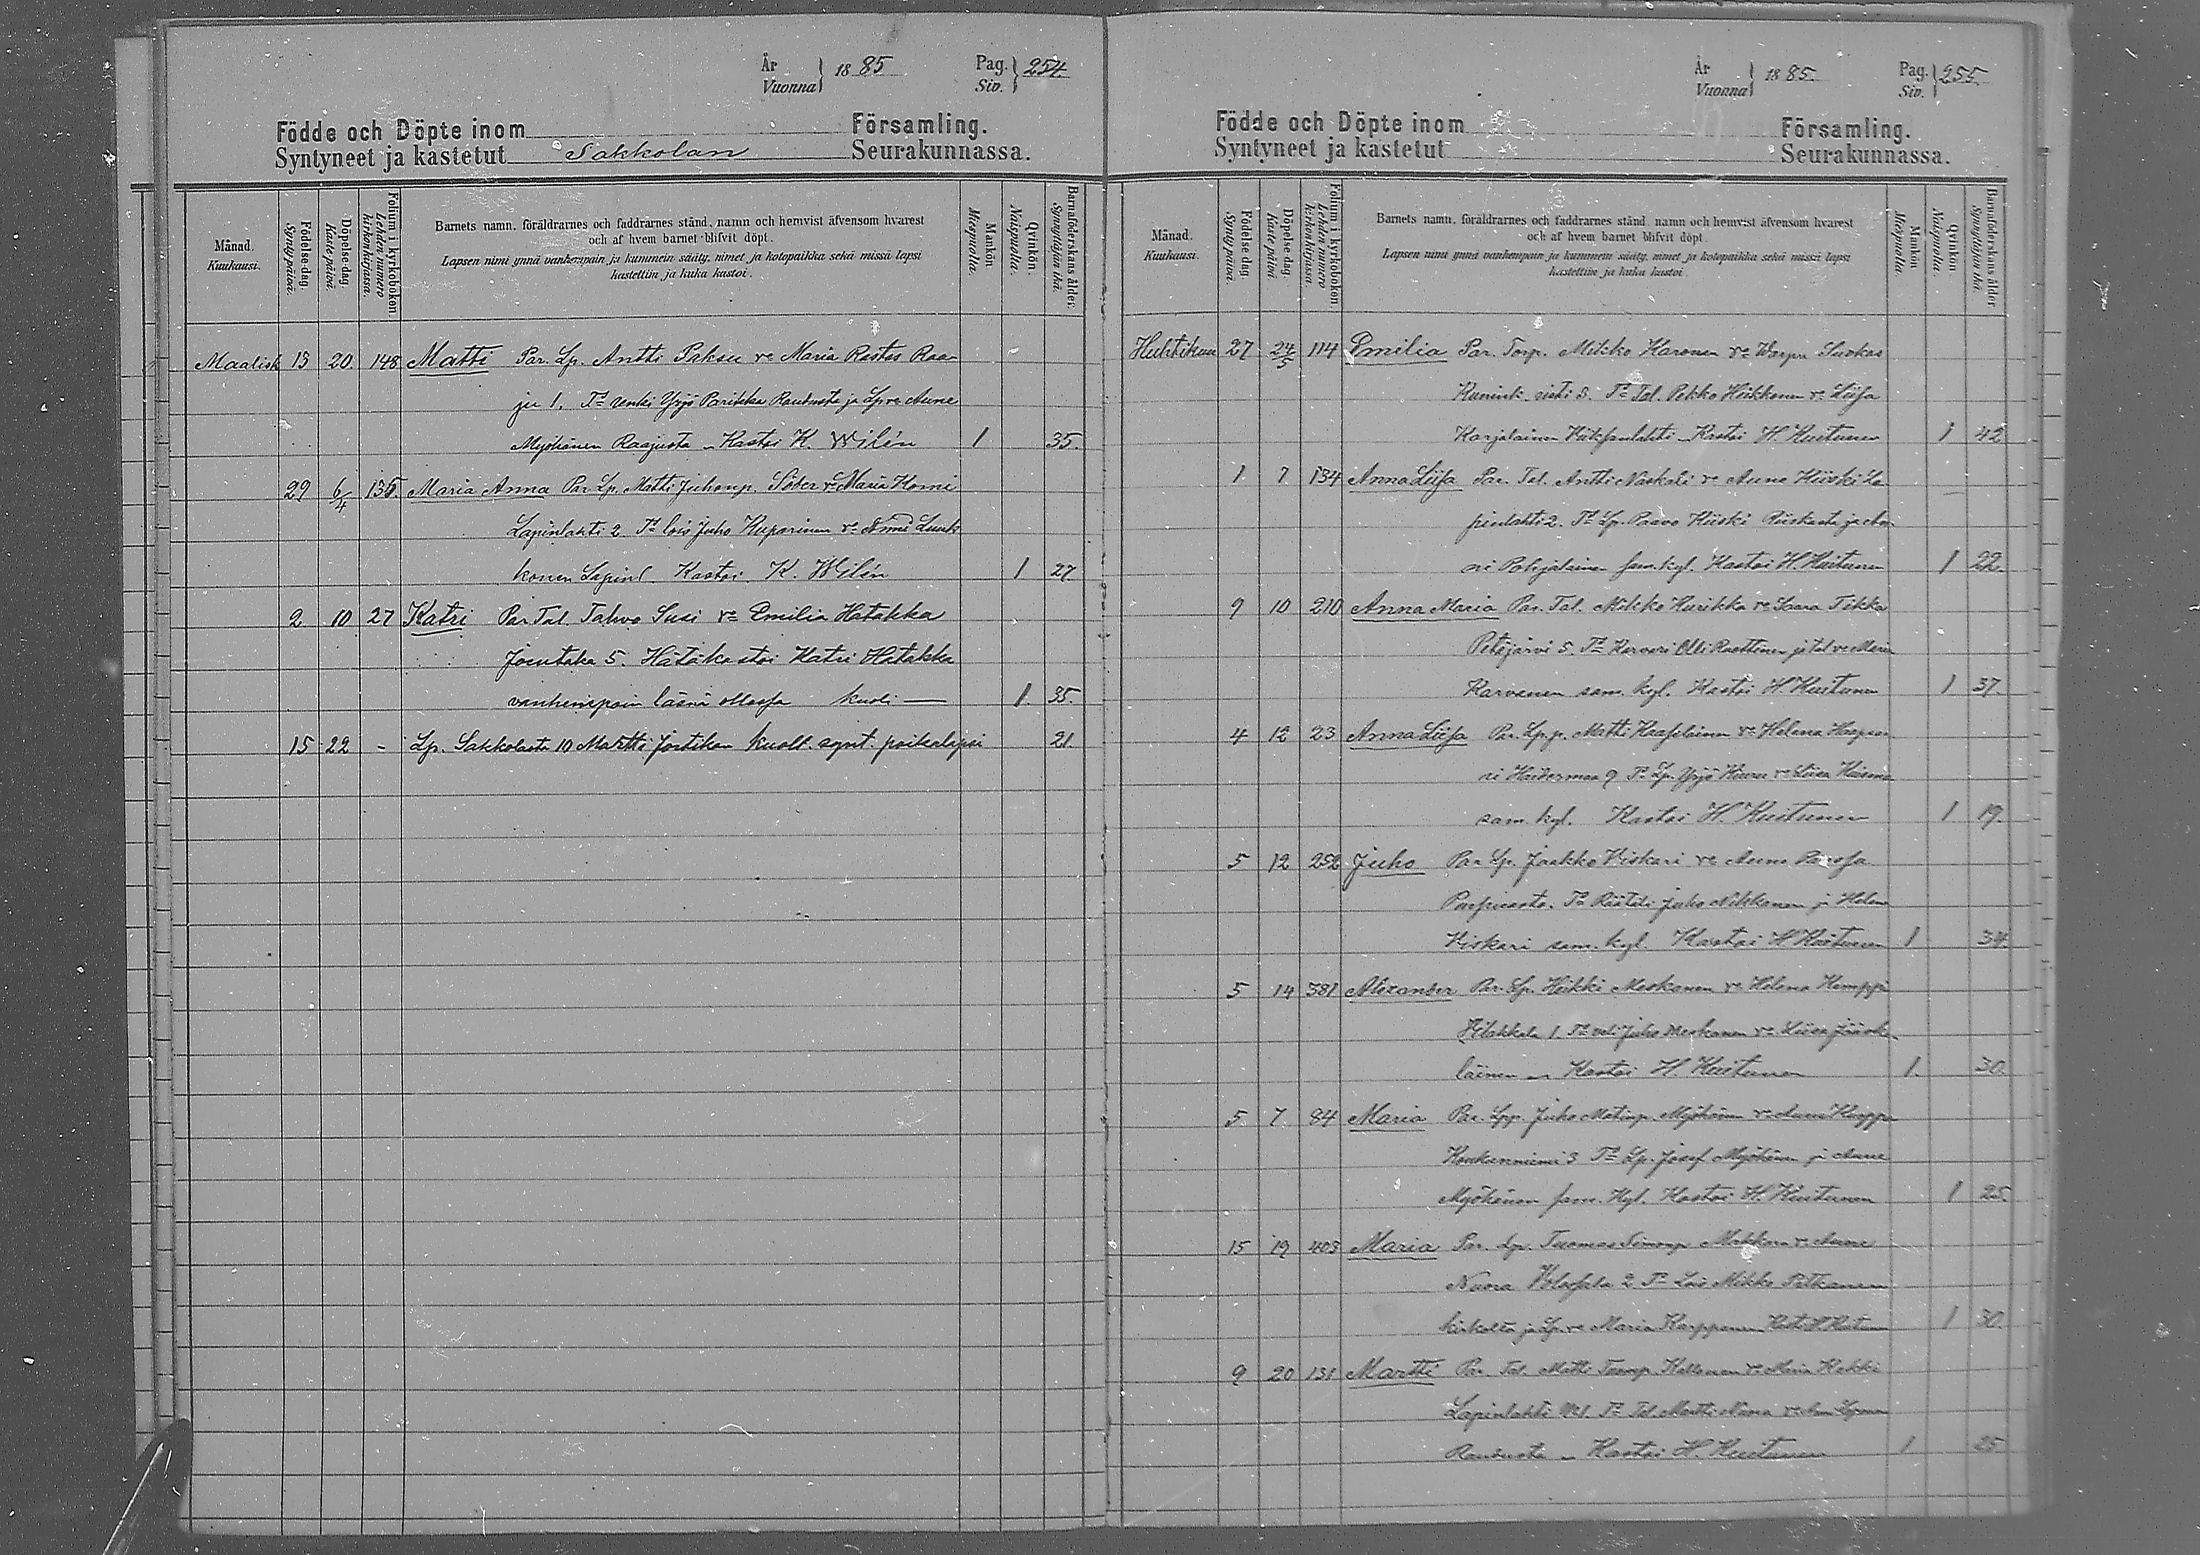 År Vuonna 1885 Pag. Siv. 254
Födde och Döpte inom Församling.
Syntyneet ja kastetut Sakkolan Seurakunnassa.
Månad. Kuukausi.
Födelse-dag. Synty-päivä.
Döpelse-dag. Kaste-päivä.
Folium i kyrkoboken Lehden numero kirkonkirjassa.
Barnets namn, föräldrarnes och faddrarnes stånd, namn och hemvist äfvensom hvarest
och af hvem barnet blifvit döpt.
Lapsen nimi ynnä vanhempain ja kummein sääty, nimet ja kotopaikka sekä missä lapsi
kastettiin ja kuka kastoi.
Mankön Miespuolia.
Qvinkön. Naispuolia.
Barnaföderskans ålder. Synnyttäjän ikä.
Maalisk 13 20. 148 Matti Par. Lp. Antti Paksu vo Maria Rastas Raa-
ju 1. Tt Yrjö Parikka Raudusta ja Lp. vo Anne
Myöhänen Raajusta - Kastoi K. Wilén 1 35.
29 6/4 135 Maria Anna Par Lp. Matti Juhonp. Söder vo Maria Homi
Lapinlahti 2 Tt lois Juho Kuparinen vo Anni Luuk
konen Lapinl Kastoi K. Wilén 1 27
2 10 27 Katri Par Tal. Tahvo Susi vo Emilia Hatakka
Joentaka 5. Hätäkastoi Katri Hatakka
vanhempain läsnä ollessa kuoli — 1. 35.
15 22 - Lp. Sakkolasta 10 Martti kuoll. synt. poikalapsi 21.
År Vuonna 1885. Pag. Siv. 255.
Födde och Döpte inom Församling.
Syntyneet ja kastetut Seurakunnassa.
Månad. Kuukausi.
Födelse-dag. Synty-päivä.
Döpelse-dag. Kaste-päivä.
Folium i kyrkoboken Lehden numero kirkonkirjassa.
Barnets namn, föräldrarnes och faddrarnes stånd, namn och hemvist äfvensom hvarest
och af hvem barnet blifvit döpt.
Lapsen nimi ynnä vanhempain ja kummein sääty, nimet ja kotopaikka sekä missä lapsi
kastettiin ja kuka kastoi.
Mankön Miespuolia.
Qvinkön Naispuolia.
Barnaföderskans ålder Synnyttäjän ikä.
Huhtikuu 27 24/5 114 Emilia Par. Torp. Mikko Karonen vo Warpu Suokas
Kunink. risti 8. Tt Tal. Pekko Heikkonen vo Liisa
Karjalainen Kiiksanlahti - Kastoi H. Kuitunen 1 42
1 7 134 Anna Liisa Par. Tal. Antti Naskali vo Anna Hiiski La
pinlahti 2. Tt Lp. Paavo Hiiski Riiskasta ja An
ni Pohjalainen sam. kyl. Kastoi H. Kuitunen 1 22.
9 10 210 Anna Maria Par. Tal. Mikko Kurikka vo Saara Tikka
Petäjärvi 5. Tt Karvari Olli Raattinen ja tal vo Maria
Karvanen sam. kyl. Kastoi H. Kuitunen 1 37.
4 12 23 Anna Liisa Par. Lp. p. Matti Kaaseleinen vo Helena
Haitermaa 9 Tt Lp. Yrjö Kiuru vo Liisa
sam. kyl. Kastoi H. Kuitunen 1 19.
5 12 252 Juho Par Lp. Jaakko Kiskari vo Anna
Tt Räätäli Juho Nikkanen ja Helena
Kiskari sam. kyl. Kastoi H Kuitunen 1 34
5 14 381 Alexander Par. Lp. Heikki Meskanen vo Helena Hemppi
Wilakkala 1. Tt veli Juho Meskanen vo Liisa Jääske-
läinen - Kastoi H. Kuitunen 1. 30.
5 7. 84 Maria Par. Lpp. Juho Matinp. Myöhänen vo Anna
Koukunniemi 3 Tt Lp. Josef Myöhänen ja Anna
Myöhänen sam. kyl. Kastoi H. Kuitunen 1 25.
15 19 403 Maria Par. Lp. Tuomas Simonp. vo Anna
Nuora 2 Tt Lois Mikko Potkonen
kirkolta ja Lp. vo Maria Karppanen Kast. H Kuitunen 1 30.
9 20 131 Martti Par. Tal. Matti vo Maria Kekki
Lapinlahti Tt Tal. Martti Nuora
Raudusta - Kastoi H. Kuitunen 1 25